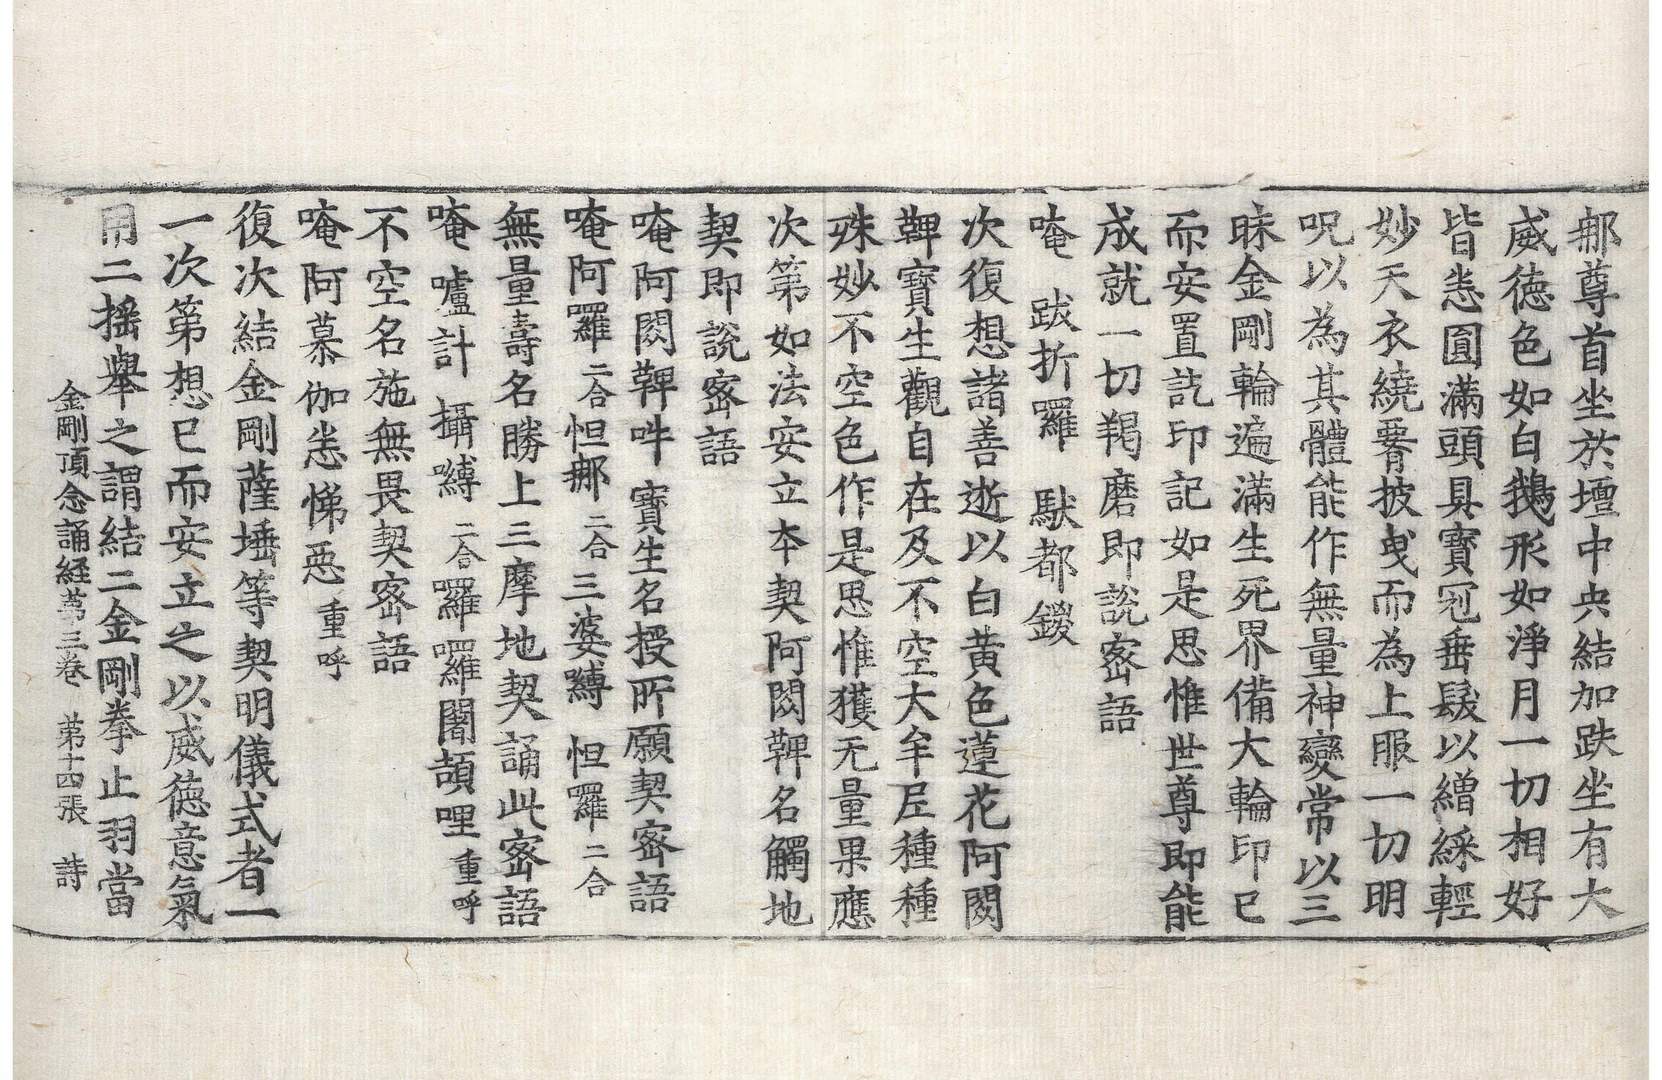 那尊首坐於壇中央結加趺坐有大
威德色如白鵝形如淨月一切相好
皆悉圓滿頭具寶冠垂髮以繒綵輕
妙天衣繞䏶披曵而為上服一切明
呪以為其體能作無量神變常以三
昧金剛輪遍滿生死界備大輪印已
而安置訖印記如是思惟世尊即能
成就一切羯磨即說密語
唵 跋折囉 馱都鑁
次復想諸善逝以白黃色蓮花阿閦
鞞寶生觀自在及不空大牟尼種種
殊妙不空色作是思惟獲无量果應
次第如法安立夲契阿閦鞞名觸地
契即說密語
唵阿閦鞞吽 寶生名授所願契密語
唵阿囉二合怛那二合三婆嚩 怛囉二合
無量壽名勝上三摩地契誦此密語
唵嚧計 攝嚩二合囉囉闍頡哩重呼
不空名施無畏契密語
唵阿慕伽悉悌惡重呼
復次結金剛薩埵等契明儀式者一
一次第想已而安立之以威德意氣
用二搖舉之謂結二金剛拳止羽當
金剛頂念誦経苐三卷 苐十四張 詩